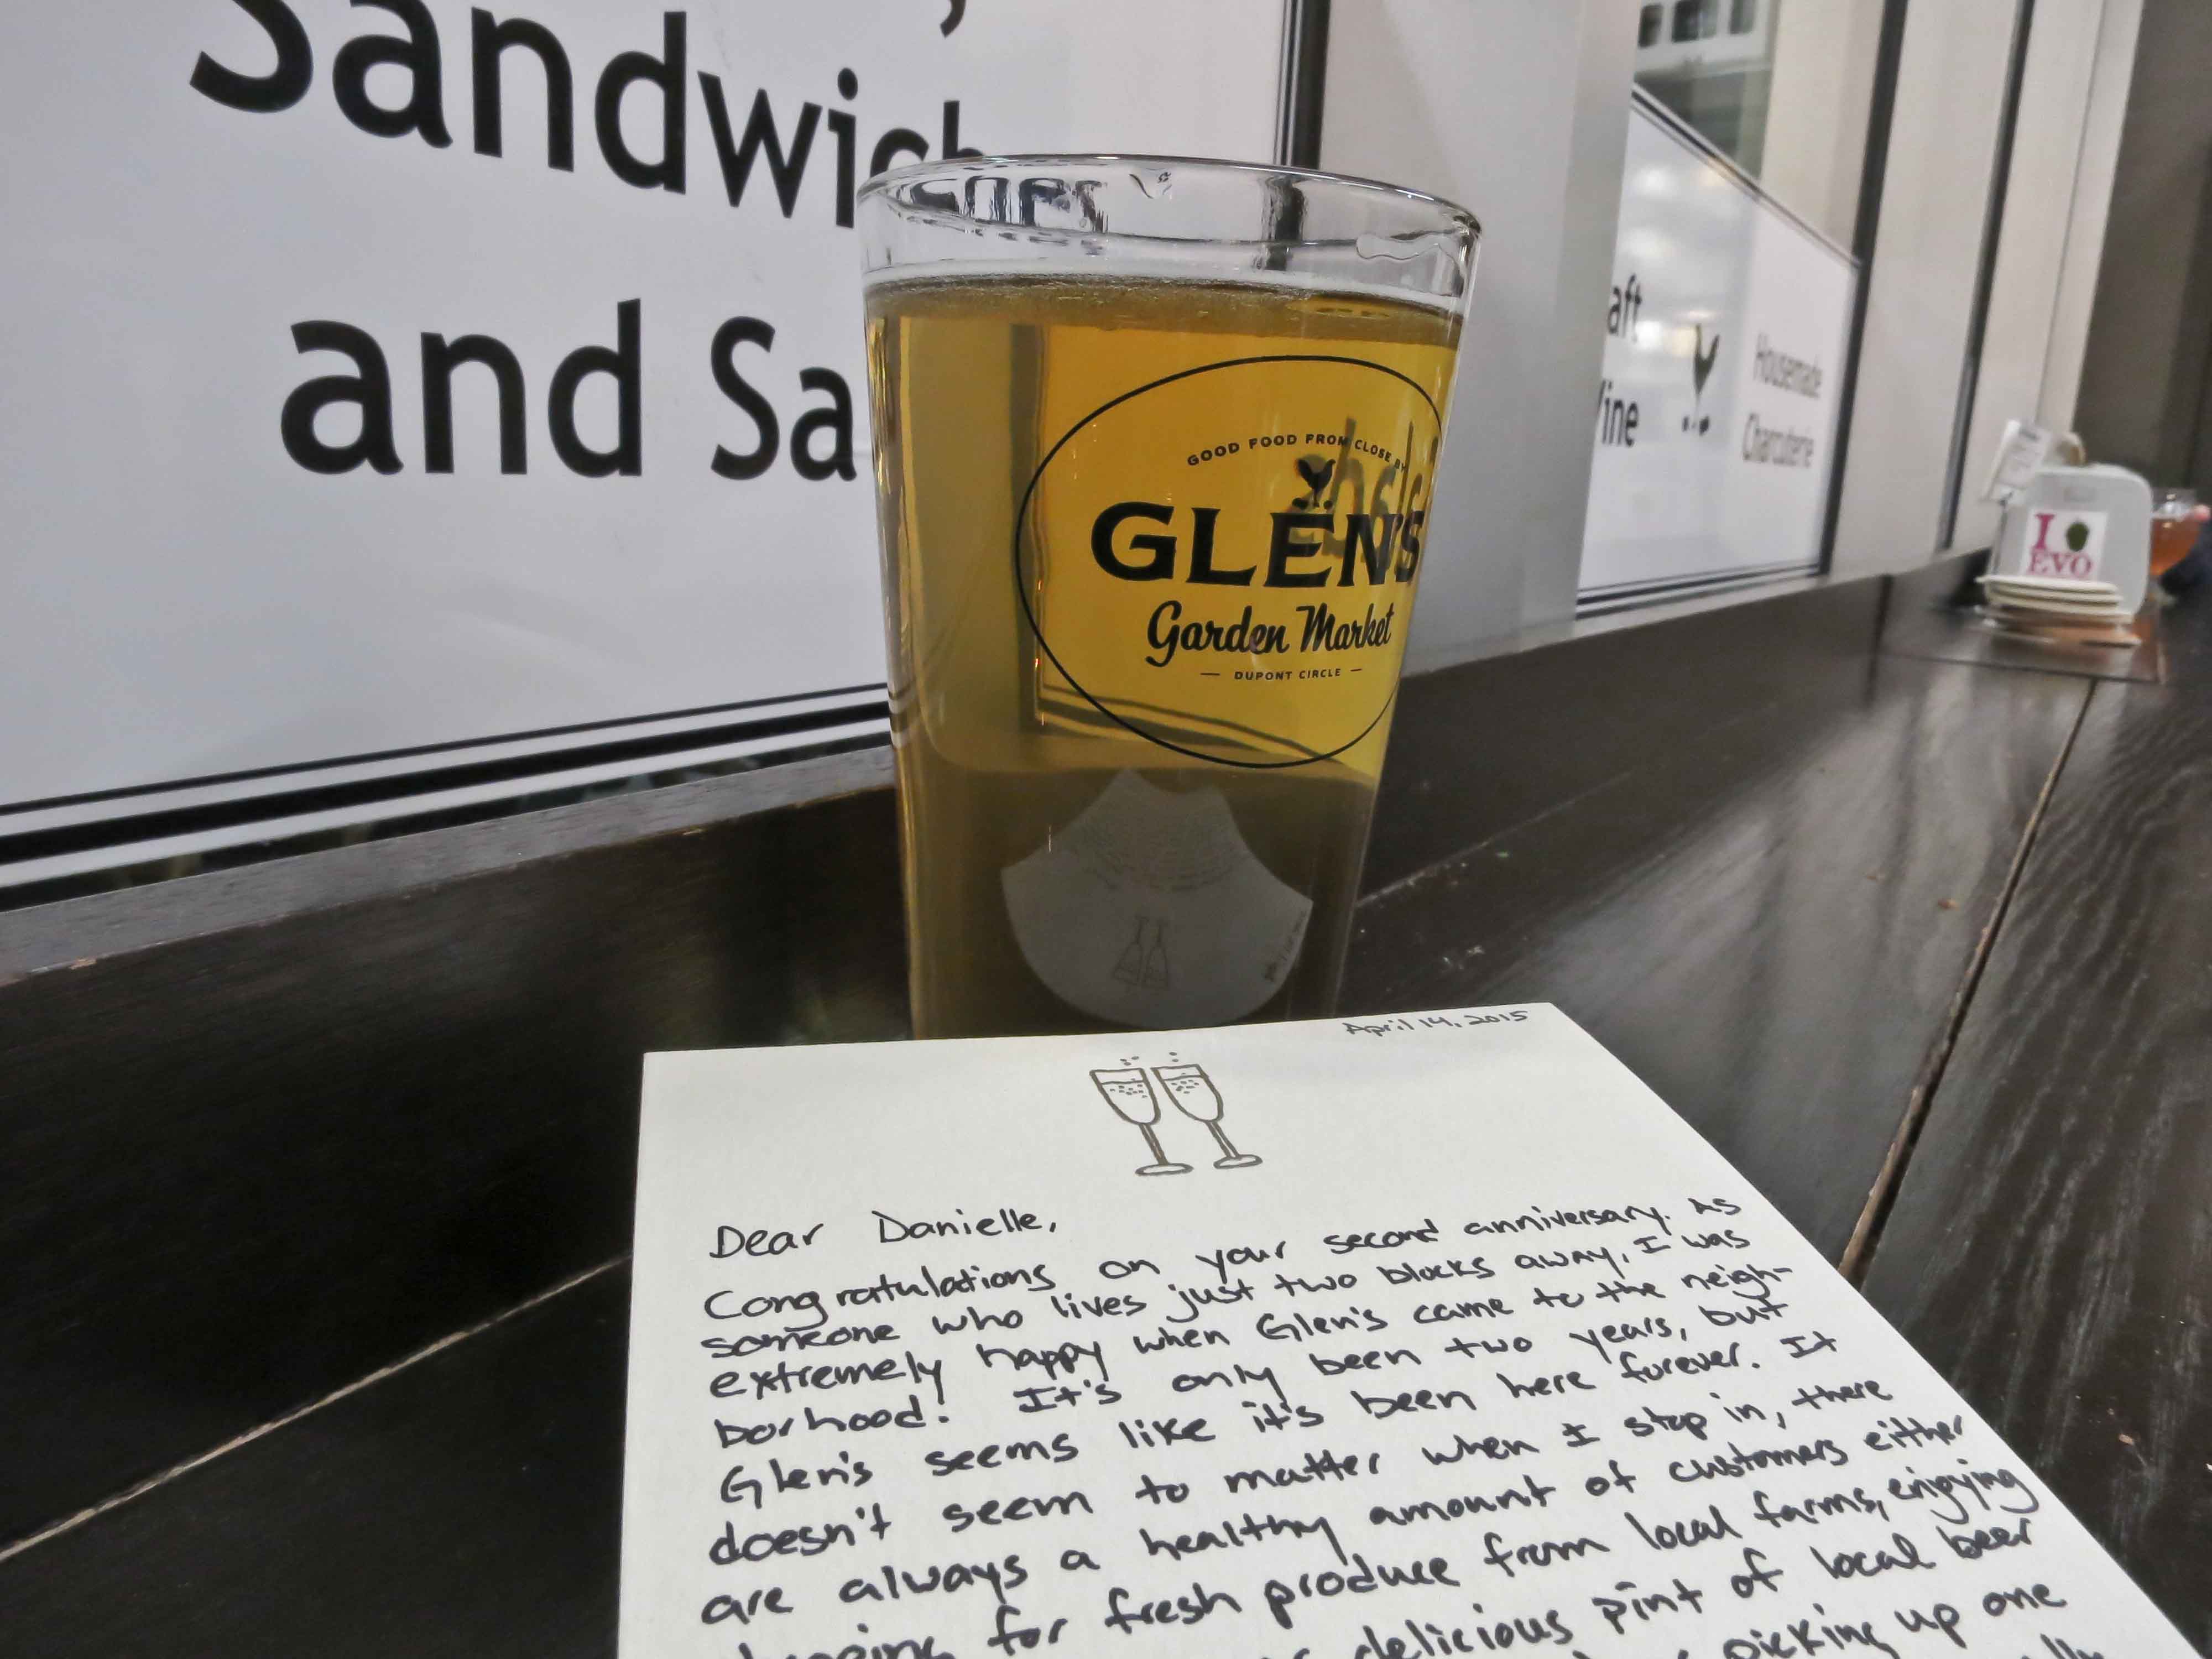 Sandwich
and Sa
GOOD FOOD FROM CLOSE BY
GLEN'S
Garden Market
— DUPONT CIRCLE —
aft
ine
Housemade
Charcuterie
I
EVO
April 14, 2015
Dear Danielle,
Congratulations on your second anniversary. As
someone who lives just two blocks away, I was
extremely happy when Glen's came to the neigh-
borhood! It's only been two years, but
Glen's seems like it's been here forever. It
doesn't seem to matter when I stop in, there
are always a healthy amount of customers either
for fresh produce from local farms, enjoying
delicious pint of local beer
picking up one